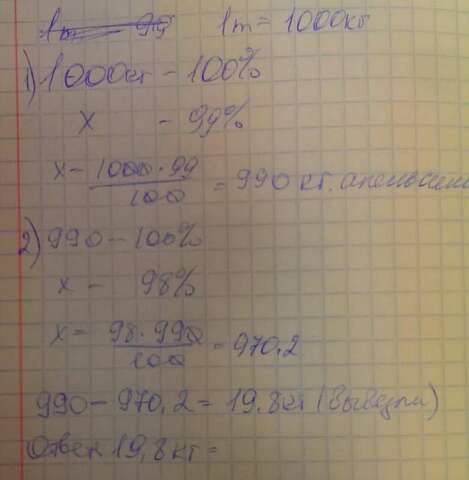 1т = 1000кг
1) 1000кг - 100%
х - 99%
х - 1000 · 99 / 100 = 990 кг. апельсин
2) 990 - 100%
х - 98%
х = 98 · 990 / 100 = 970,2
990 - 970,2 = 19,8кг (Вывезли)
Ответ 19,8 кг =